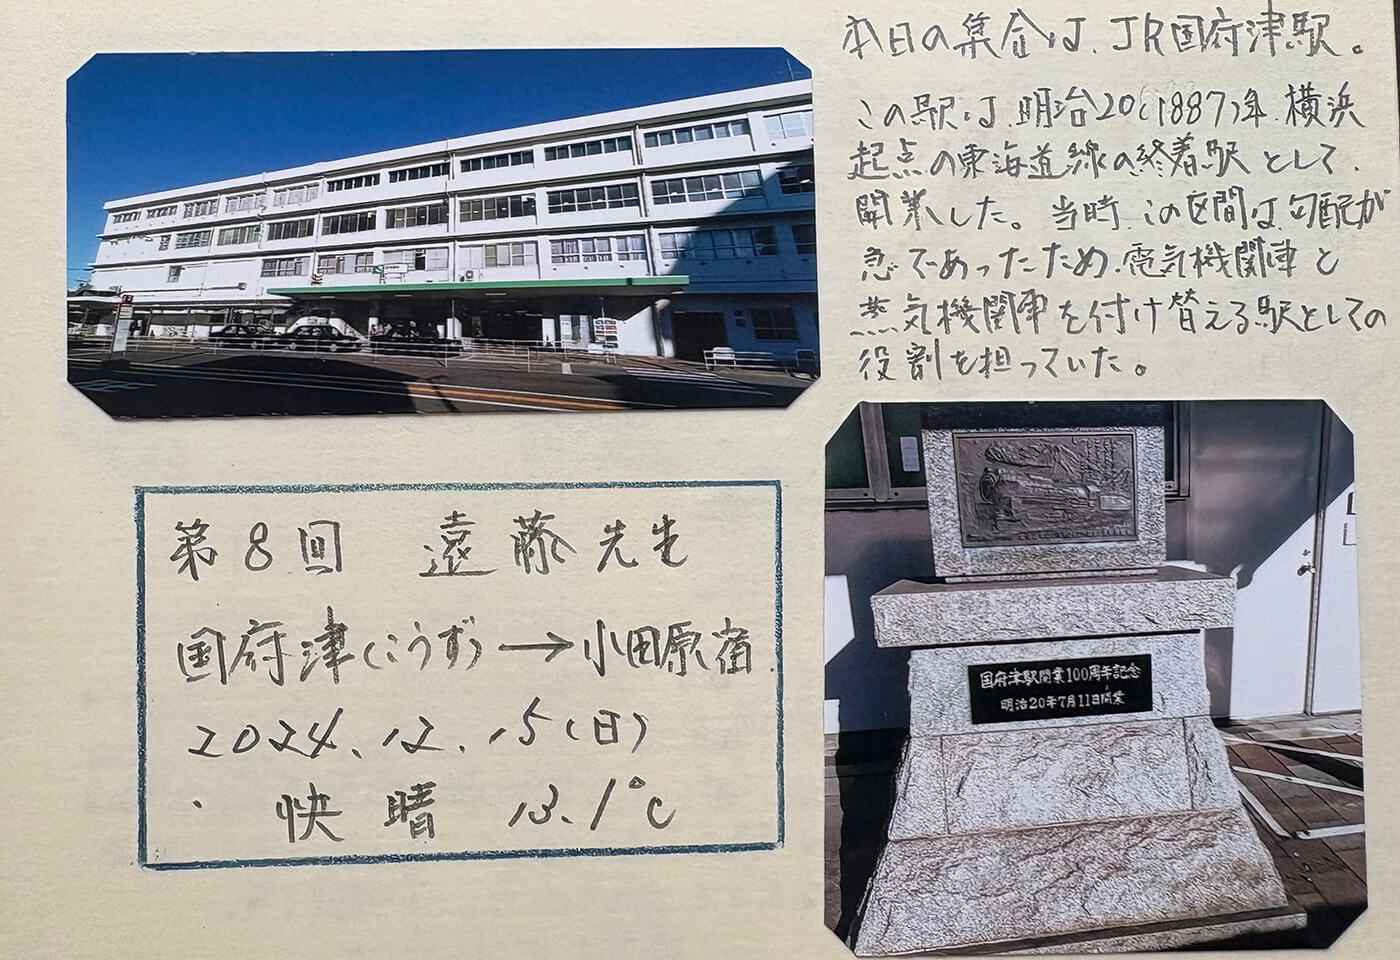 本日の集合は、JR国府津駅。
この駅は、明治20(1887)年、横浜
起点の東海道線の終着駅として、
開業した。当時、この区間は勾配が
急であったため、電気機関車と
蒸気機関車を付け替える駅としての
役割を担っていた。
第8回 遠藤先生
国府津(こうず)→小田原宿
2024.12.15(日)
快晴 13.1℃
国府津駅開業100周年記念
明治20年7月11日開業